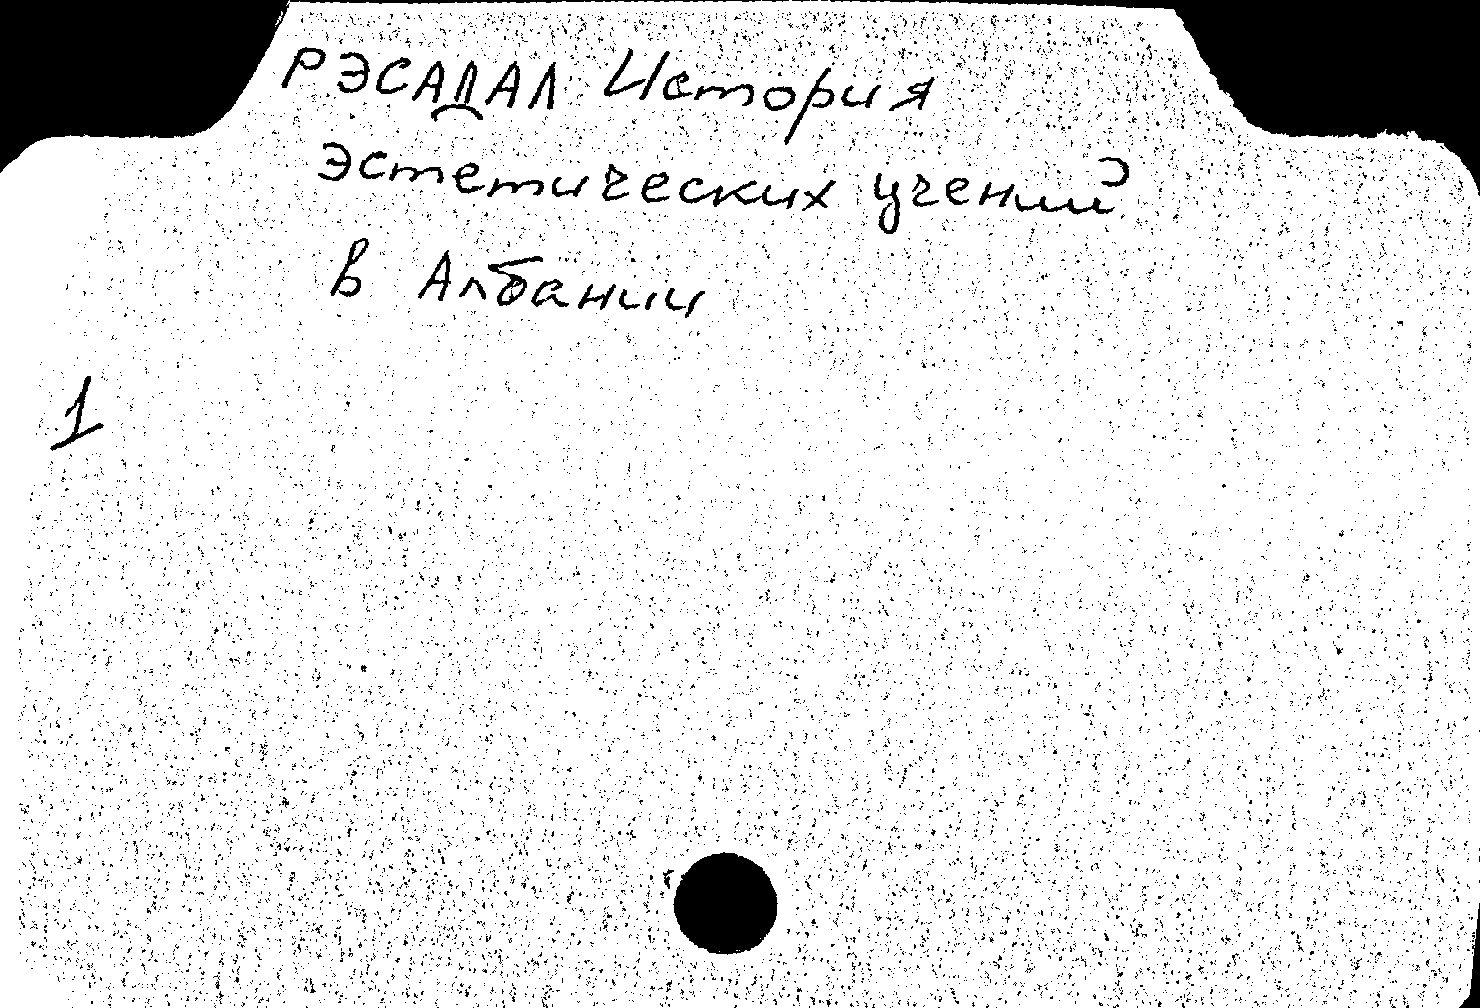 РЭСАДАЛ История
эстетических учений
в Албании
1